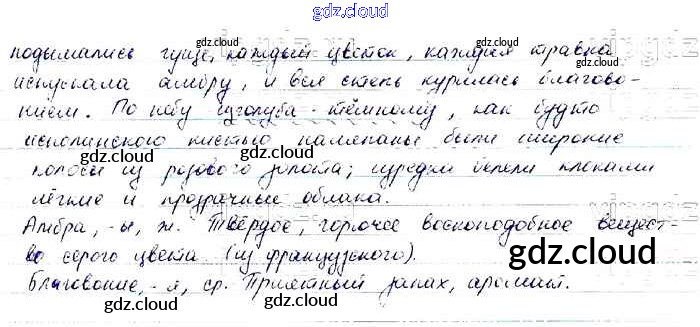 gdz.cloud
подымались гуще, каждый цветок, каждая травка
испускала амбру, и вся степь курилась благово-
нием. По небу изголуба-тёмному, как будто
исполинского кистью наляпаны были широкие
полосы из розового золота; изредка белели клоками
лёгкие и прозрачные облака.
Амбра, -ы, ж. Твёрдое, горючее воскоподобное вещест-
во серого цвета. (из французского).
Благовоние, -я, ср. Приятный запах, аромат.
gdz.cloud